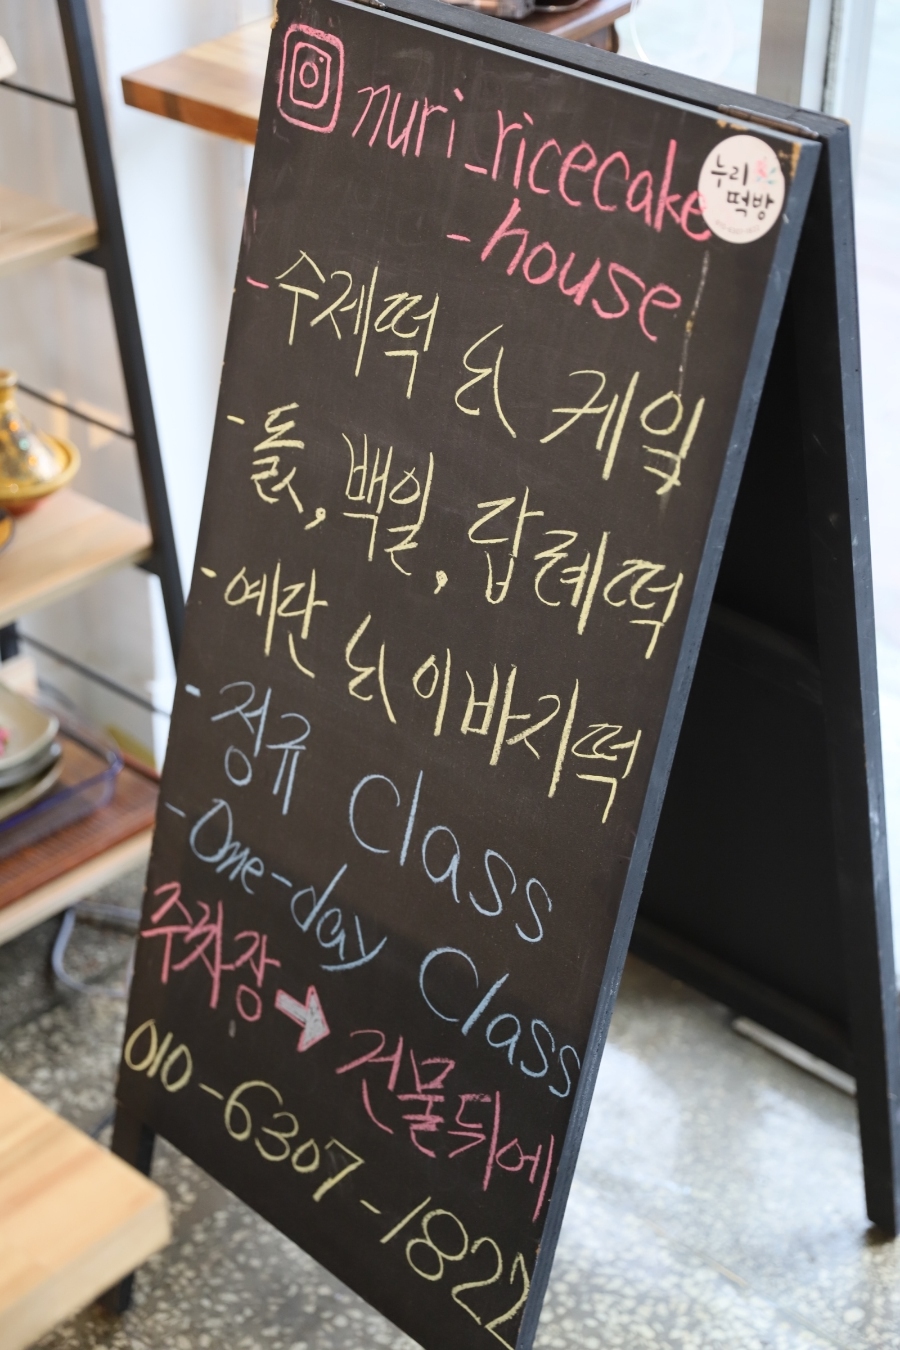 nuri_ricecake
-house
누리
떡방
-수제떡 및 케잌
-돌, 백일, 답례떡
-예단 및 이바지떡
-정규 Class
-One-day Class
주차장 → 건물뒤에
010-6307-1822